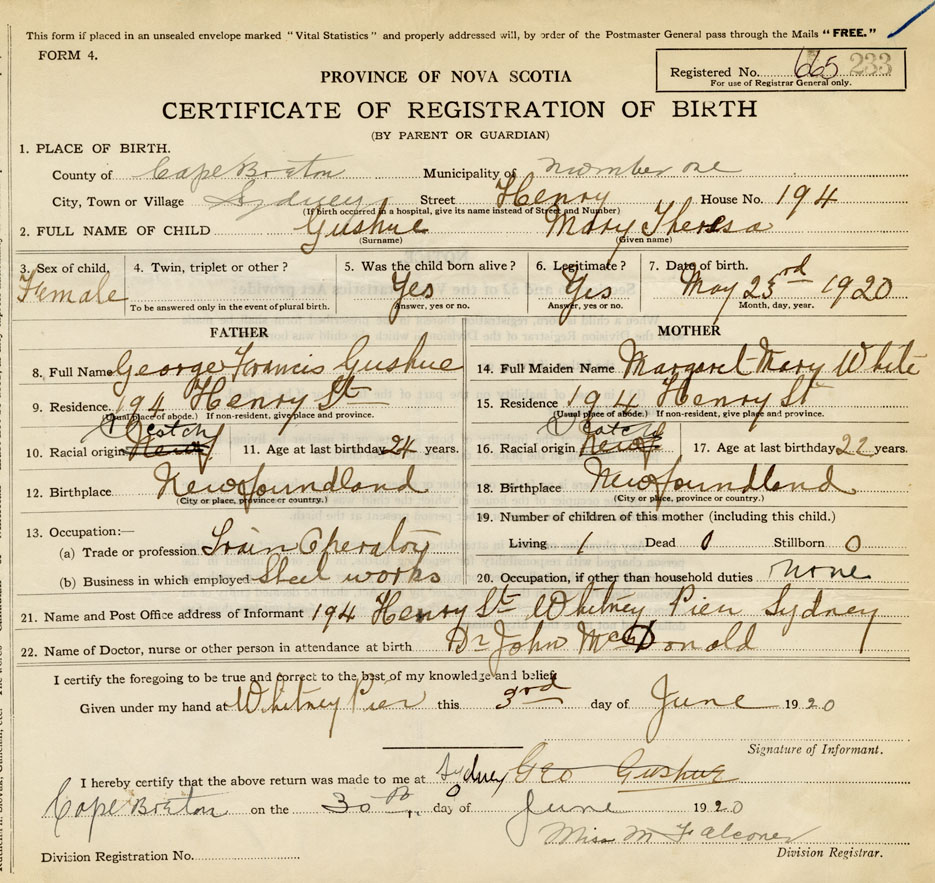 This form if placed in an unsealed envelope marked "Vital Statistics" and properly addressed will, by order of the Postmaster General pass through the Mails "FREE."
FORM 4.
Registered No. 665 233
For use of Registrar General only.
PROVINCE OF NOVA SCOTIA
CERTIFICATE OF REGISTRATION OF BIRTH
(BY PARENT OR GUARDIAN)
1. PLACE OF BIRTH.
County of Cape Breton Municipality of Number one
City, Town or Village Sydney Street Henry House No. 194
(If birth occurred in a hospital, give its name instead of Street and Number)
2. FULL NAME OF CHILD Gushue Mary Theresa
(Surname) (Given name)
3. Sex of child. 4. Twin, triplet or other? 5. Was the child born alive? 6. Legitimate? 7. Date of birth.
Female Yes Yes May 23rd 1920
To be answered only in the event of plural birth. Answer, yes or no. Answer, yes or no. Month, day, year.
FATHER MOTHER
8. Full Name George Francis Gushue 14. Full Maiden Name Margaret Mary White
9. Residence. 194 Henry St 15. Residence 194 Henry St
(Usual place of abode.) If non-resident, give place and province. (Usual place of abode.) If non-resident, give place and province.
Scotch Scotch
10. Racial origin Newf 11. Age at last birthday 24 years. 16. Racial origin Newf 17. Age at last birthday 22 years.
12. Birthplace Newfoundland 18. Birthplace Newfoundland
(City or place, province or country.) (City or place, province or country.)
13. Occupation:— 19. Number of children of this mother (including this child.)
(a) Trade or profession Train Operator Living 1 Dead 0 Stillborn 0
(b) Business in which employed Steel works 20. Occupation, if other than household duties none
21. Name and Post Office address of Informant 194 Henry St Whitney Pier Sydney
22. Name of Doctor, nurse or other person in attendance at birth Dr John McDonald
I certify the foregoing to be true and correct to the best of my knowledge and belief.
Given under my hand at Whitney Pier this 3rd day of June 1920
Signature of Informant.
I hereby certify that the above return was made to me at Sydney Geo Gushue
Cape Breton on the 30th day of June 1920
Miss M Falconer
Division Registration No. Division Registrar.